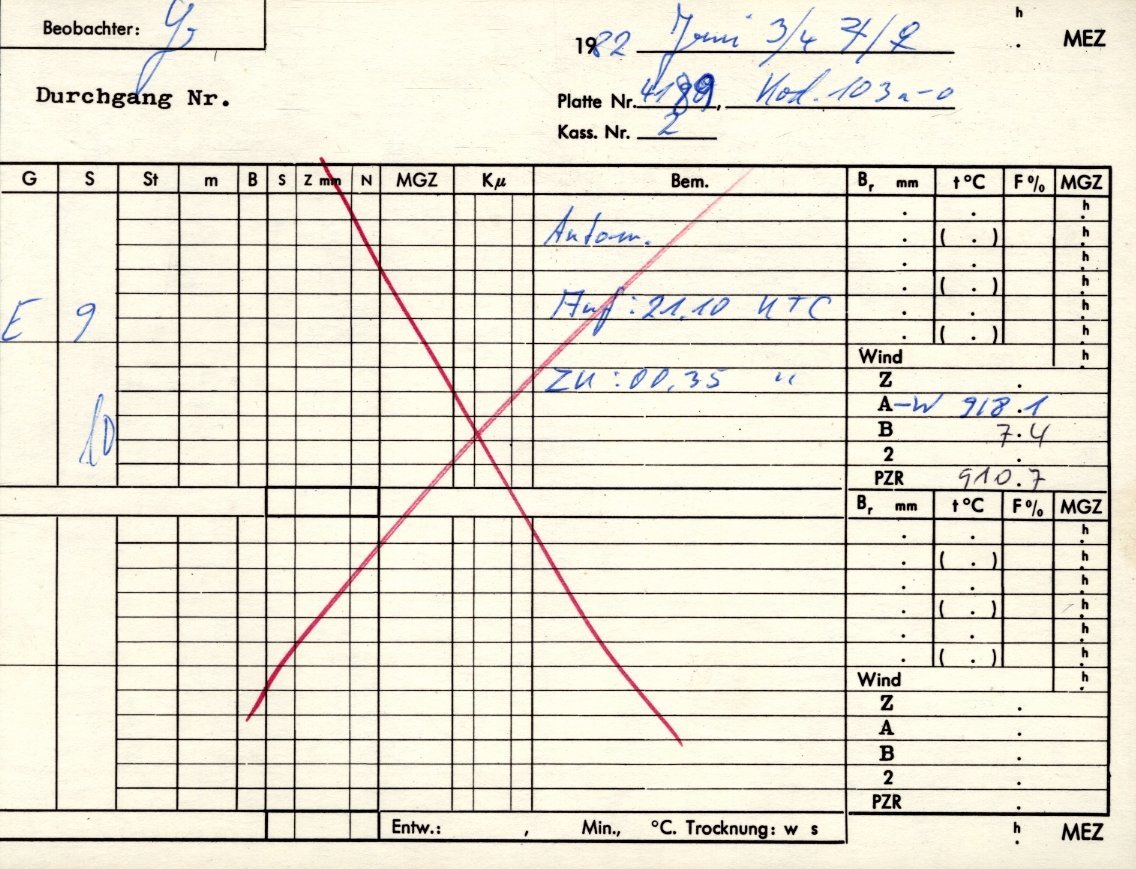 Beobachter:
1982 Juni 3/4 h . MEZ
Durchgang Nr.
Platte Nr. 4189, Kod. 103a-o
Kass. Nr. 2
G S St m B S Z mm N MGZ Kμ Bem. Br mm t °C F % MGZ
. . h
Autom. . ( . ) h
. . h
. ( . ) h
E 9 Auf: 21.10 UTC . . h
. ( . ) h
Wind h
Zu: 00.35 " Z .
A-W 918.1
10 B 7.4
2 .
PZR 910.7
Br mm t °C F % MGZ
. . h
. ( . ) h
. . h
. ( . ) h
. . h
. ( . ) h
Wind h
Z .
A .
B .
2 .
PZR .
Entw.: , Min., °C. Trocknung: w s h . MEZ